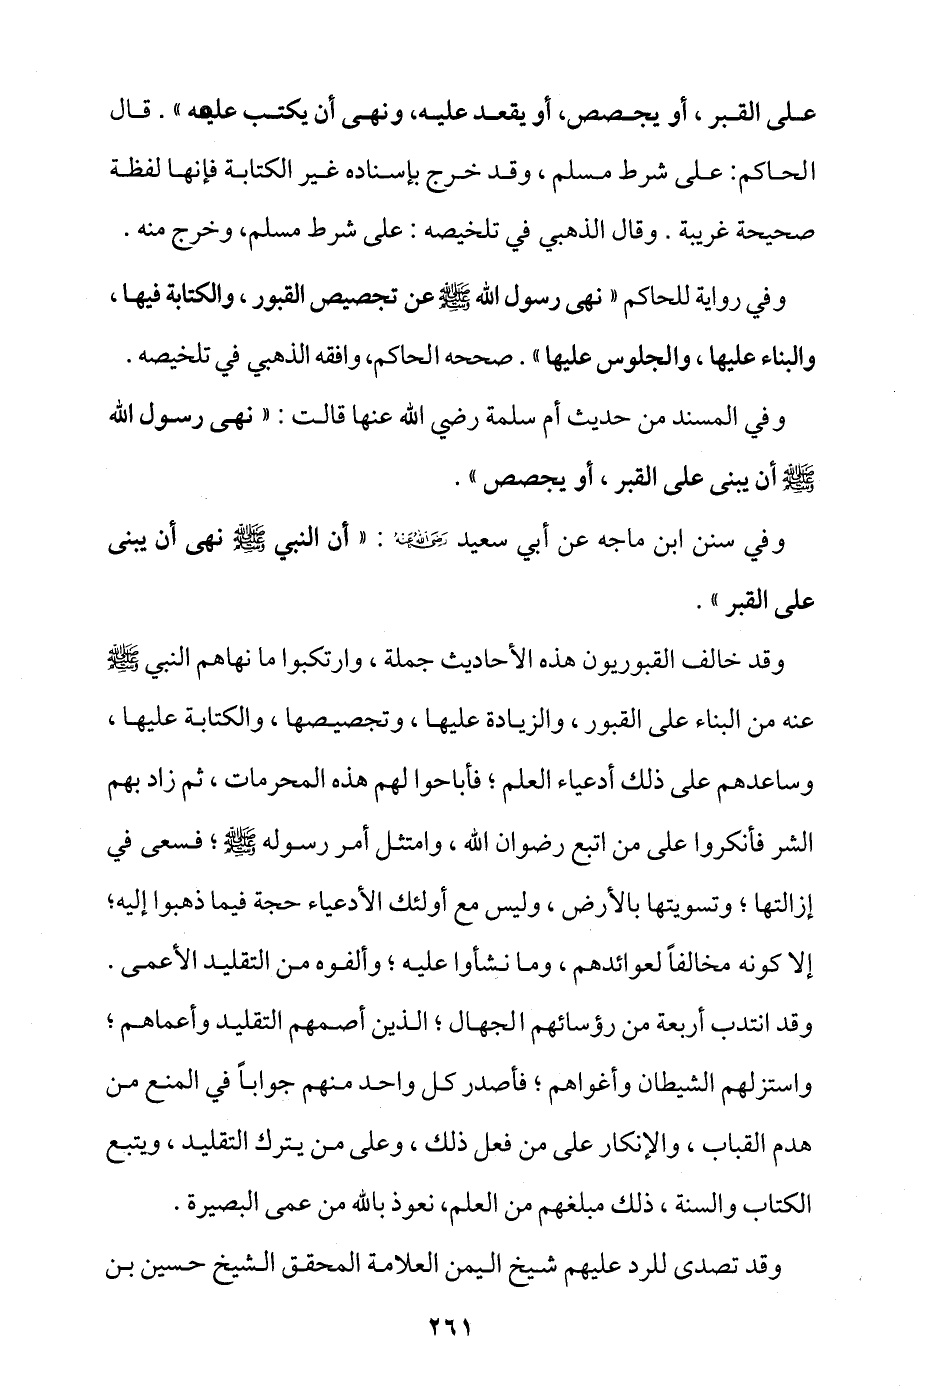 على القبر ، أو يجصص، أو يقعد عليه، ونهى أن يكتب عليه » . قال
الحاكم: على شرط مسلم ، وقد خرج بإسناده غير الكتابة فإنها لفظة
صحيحة غريبة . وقال الذهبي في تلخيصه : على شرط مسلم، وخرج منه .
وفي رواية للحاكم « نهى رسول الله ﷺ عن تجصيص القبور ، والكتابة فيها ،
والبناء عليها ، والجلوس عليها» . صححه الحاكم، وافقه الذهبي في تلخيصه .
وفي المسند من حديث أم سلمة رضي الله عنها قالت : « نهى رسول الله
ﷺ أن يبنى على القبر ، أو يجصص » .
وفي سنن ابن ماجه عن أبي سعيد رضي الله عنه : « أن النبي ﷺ نهى أن يبنى
على القبر » .
وقد خالف القبوريون هذه الأحاديث جملة ، وارتكبوا ما نهاهم النبي ﷺ
عنه من البناء على القبور ، والزيادة عليها ، وتجصيصها ، والكتابة عليها ،
وساعدهم على ذلك أدعياء العلم ؛ فأباحوا لهم هذه المحرمات ، ثم زاد بهم
الشر فأنكروا على من اتبع رضوان الله ، وامتثل أمر رسوله ﷺ ؛ فسعى في
إزالتها ؛ وتسويتها بالأرض ، وليس مع أولئك الأدعياء حجة فيما ذهبوا إليه؛
إلا كونه مخالفاً لعوائدهم ، وما نشأوا عليه ؛ وألفوه من التقليد الأعمى .
وقد انتدب أربعة من رؤسائهم الجهال ؛ الذين أصمهم التقليد وأعماهم ؛
واستزلهم الشيطان وأغواهم ؛ فأصدر كل واحد منهم جواباً في المنع من
هدم القباب ، والإنكار على من فعل ذلك ، وعلى من يترك التقليد ، ويتبع
الكتاب والسنة ، ذلك مبلغهم من العلم، نعوذ بالله من عمى البصيرة .
وقد تصدى للرد عليهم شيخ اليمن العلامة المحقق الشيخ حسين بن
٢٦١